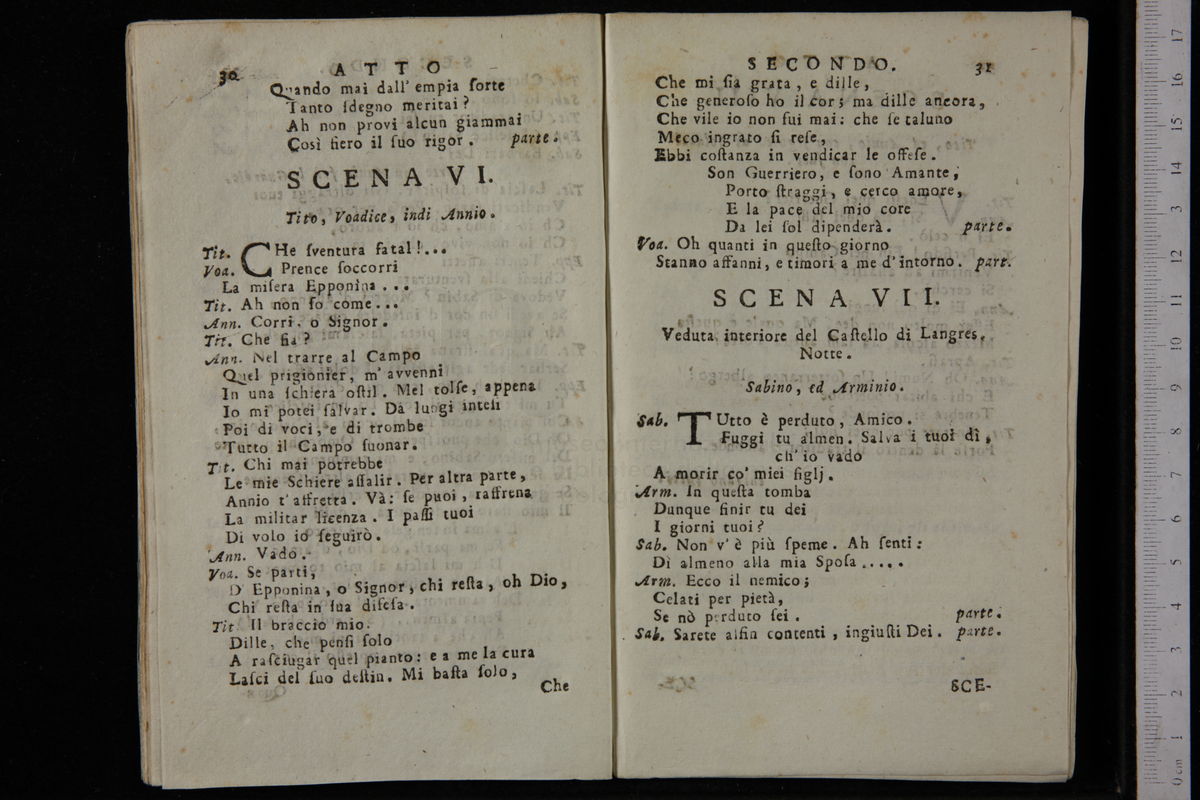 30 ATTO
Quando mai dall' empia ſorte
Tanto ſdegno meritai?
Ah non provi alcun giammai
Così fiero il ſuo rigor. parte.
SCENA VI.
Tito, Voadice, indi Annio.
Tit. CHe ſventura fatal!...
Voa. Prence ſoccorri
La miſera Epponina...
Tit. Ah non ſo come...
Ann. Corri, o Signor.
Tit. Che fia?
Ann. Nel trarre al Campo
Quel prigionier, m' avvenni
In una ſchiera oſtil. Mel tolſe, appena
Io mi potei ſalvar. Da luogi inteſi
Poi di voci, e di trombe
Tutto il Campo ſuonar.
Tit. Chi mai potrebbe
Le mie Schiere aſſalir. Per altra parte,
Annio t' affretta. Và: ſe puoi, raffrena
La militar licenza. I paſſi tuoi
Di volo io ſeguirò.
Ann. Vado.
Voa. Se parti,
D' Epponina, o Signor, chi reſta, oh Dio,
Chi reſta in ſua difeſa.
Tit. Il braccio mio.
Dille, che penſi ſolo
A raſciugar quel pianto: e a me la cura
Laſci del ſuo deſtin. Mi baſta ſolo,
Che
SECONDO. 31
Che mi ſia grata, e dille,
Che generoſo ho il cor; ma dille ancora,
Che vile io non fui mai: che ſe taluno
Meco ingrato ſi reſe,
Ebbi coſtanza in vendicar le offeſe.
Son Guerriero, e ſono Amante;
Porto ſtraggi, e cerco amore,
E la pace del mio core
Da lei ſol dipenderà. parte.
Voa. Oh quanti in queſto giorno
Stanno affanni, e timori a me d' intorno. part.
SCENA VII.
Veduta interiore del Caſtello di Langres.
Notte.
Sabino, ed Arminio.
Sab. TUtto è perduto, Amico.
Fuggi tu almen. Salva i tuoi dì,
ch' io vado
A morir co' miei figlj.
Arm. In queſta tomba
Dunque finir tu dei
I giorni tuoi?
Sab. Non v' è più ſpeme. Ah ſenti:
Dì almeno alla mia Spoſa.....
Arm. Ecco il nemico;
Celati per pietà,
Se nò perduto ſei. parte.
Sab. Sarete alfin contenti, ingiuſti Dei. parte.
SCE-